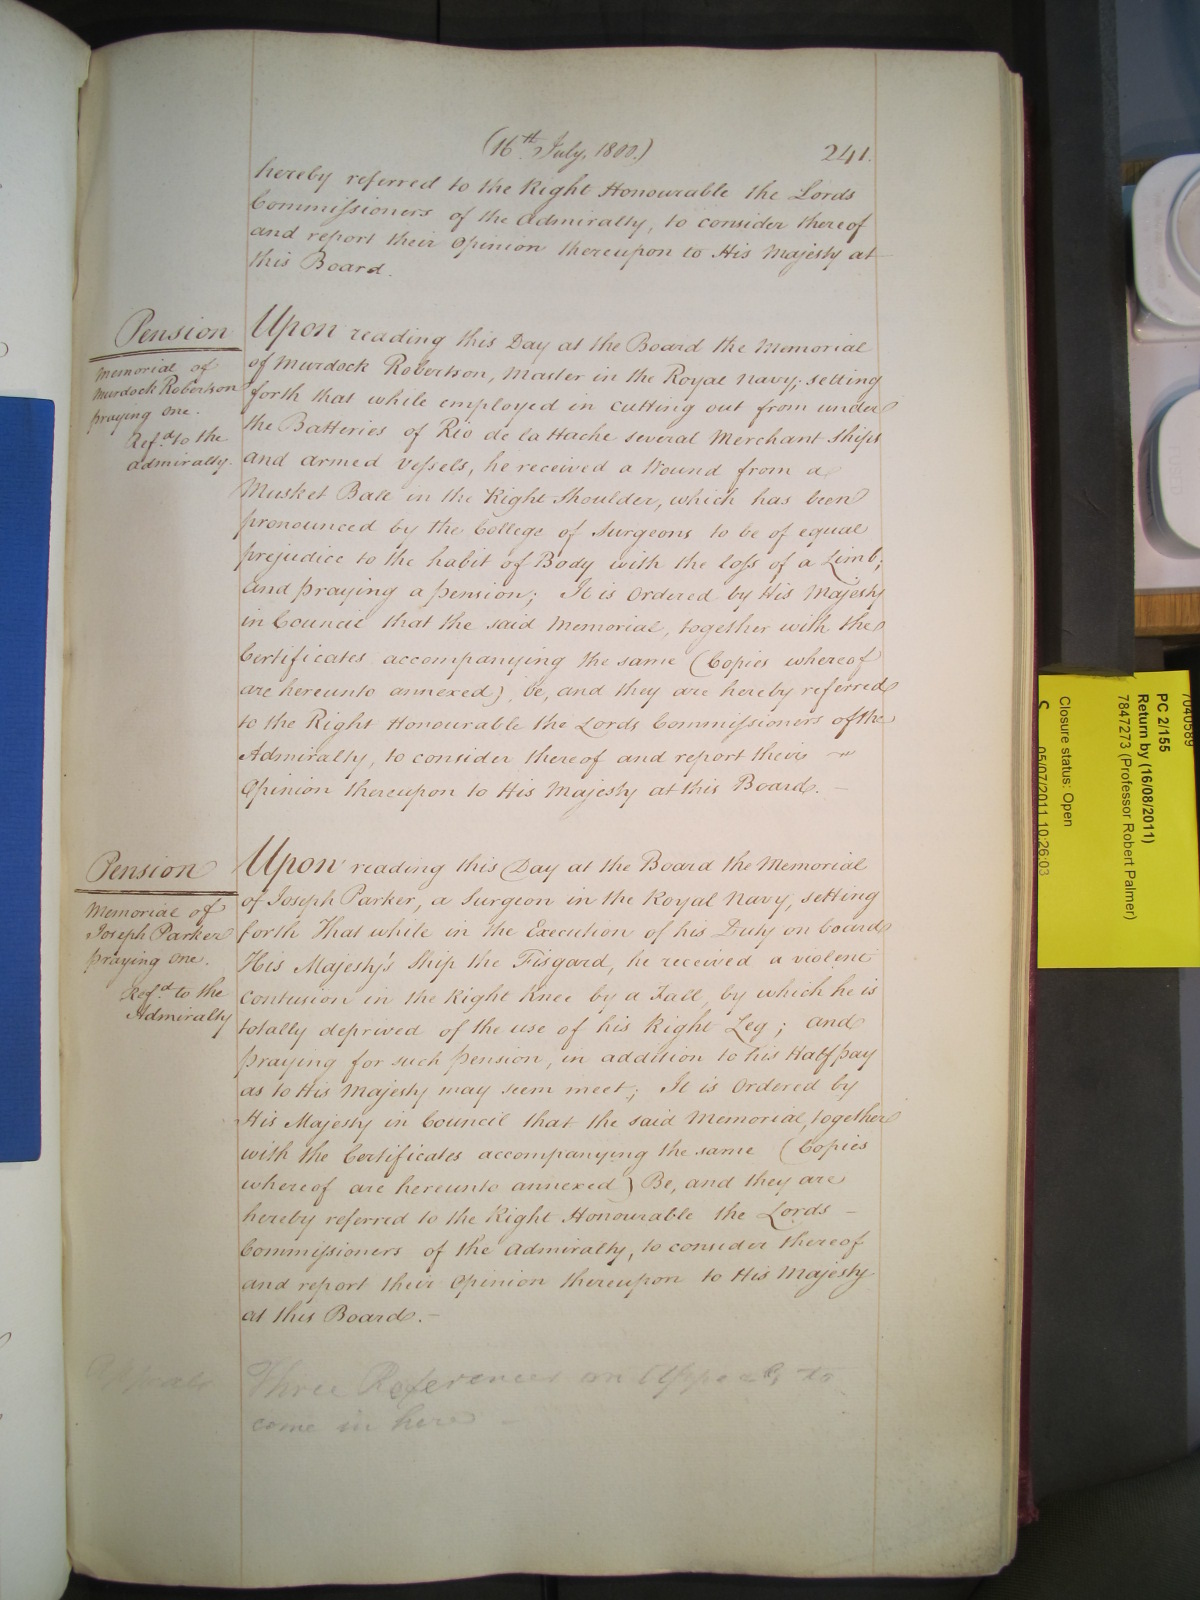 (16th July, 1800.)
241.
hereby referred to the Right Honourable the Lords
Commissioners of the Admiralty, to consider thereof
and report their Opinion thereupon to His Majesty at
this Board.
Pension
Memorial of
Murdock Robertson
praying one.
Ref.d to the
Admiralty.
Upon reading this Day at the Board the Memorial
of Murdock Robertson, Master in the Royal Navy, setting
forth that while employed in cutting out from under
the Batteries of Rio de la Hache several Merchant Ships
and armed Vessels, he received a Wound from a
Musket Ball in the Right Shoulder, which has been
pronounced by the College of Surgeons to be of equal
prejudice to the habit of Body with the loss of a Limb;
and praying a pension; It is Ordered by His Majesty
in Council that the said Memorial, together with the
Certificates accompanying the same (Copies whereof
are hereunto annexed), be, and they are hereby referred
to the Right Honourable the Lords Commissioners of the
Admiralty, to consider thereof and report their
Opinion thereupon to His Majesty at this Board. -
Pension
Memorial of
Joseph Parker
praying one.
Ref.d to the
Admiralty
Upon reading this Day at the Board the Memorial
of Joseph Parker, a Surgeon in the Royal Navy, setting
forth That while in the Execution of his Duty on board
His Majesty's Ship the Fisgard, he received a violent
contusion in the Right Knee by a Fall, by which he is
totally deprived of the use of his Right Leg; and
praying for such pension, in addition to his Half pay
as to His Majesty may seem meet; It is Ordered by
His Majesty in Council that the said Memorial, together
with the Certificates accompanying the same (Copies
whereof are hereunto annexed) Be, and they are
hereby referred to the Right Honourable the Lords -
Commissioners of the Admiralty, to consider thereof
and report their Opinion thereupon to His Majesty
at this Board. -
Appeals
Three References on Appeals to
come in here -
7040589
PC 2/155
Return by (16/08/2011)
7847273 (Professor Robert Palmer)
Closure status: Open
05/07/2011 10:26:03